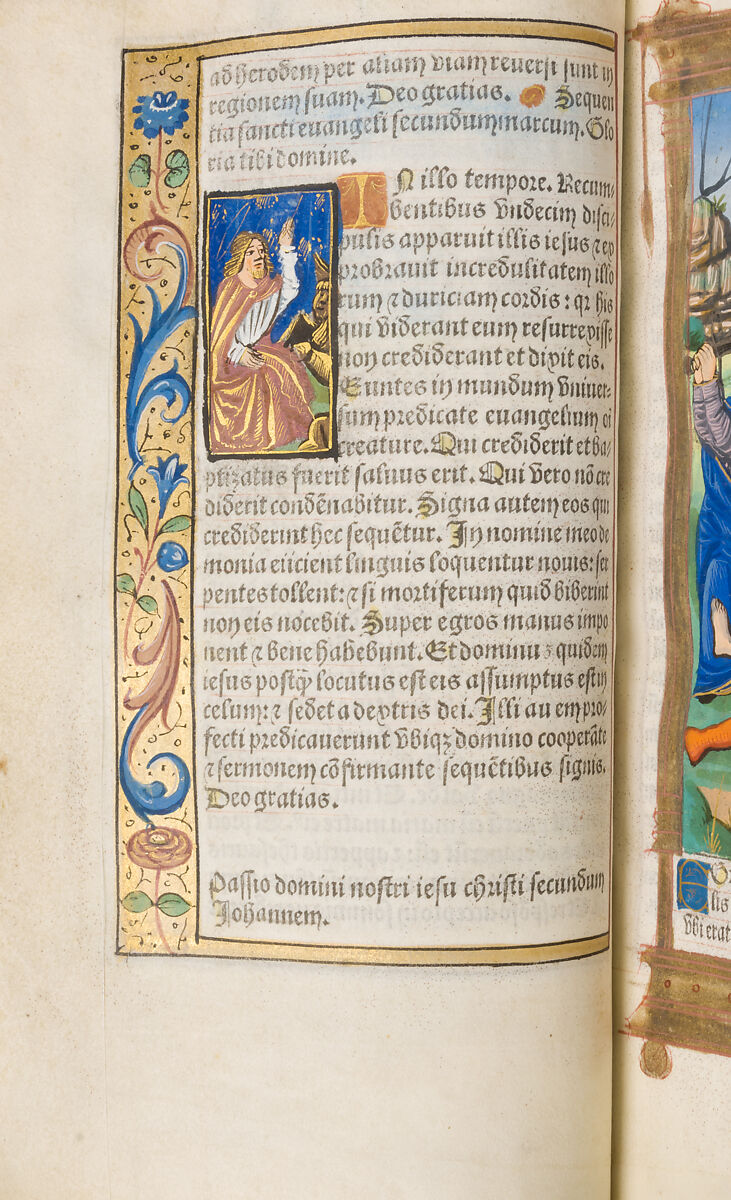 ad herodem per aliam viam reuersi sunt in
regionem suam. Deo gratias. Sequen
tia sancti euangeli secundum marcum. Glo
ria tibi domine.
IN illo tempore. Recum-
bentibus vndecim disci-
pulis apparuit illis iesus ⁊ ex
probrauit incredulitatem illo
rum ⁊ duriciam cordis: qr his
qui viderant eum resurrexisse
non crediderant et dixit eis.
Euntes in mundum vniuer-
sum predicate euangelium oi
creature. Qui crediderit et ba-
ptizatus fuerit saluus erit. Qui vero nō cre
diderit condēnabitur. Signa autem eos qui
crediderint hec sequētur. In nomine meo de
monia eiicient linguis loquentur nouis: ser
pentes tollent: ⁊ si mortiferum quid biberint
non eis nocebit. Super egros manus impo
nent ⁊ bene habebunt. Et dominu ꝫ quidem
iesus postq̄ locutus est eis assumptus est in
celum: ⁊ sedet a dextris dei. Illi au em pro-
fecti predicauerunt vbiqꝫ domino cooperāte
⁊ sermonem cōfirmante sequētibus signis.
Deo gratias.
Passio domini nostri iesu christi secundum
Johannem.
lis
vbi erat